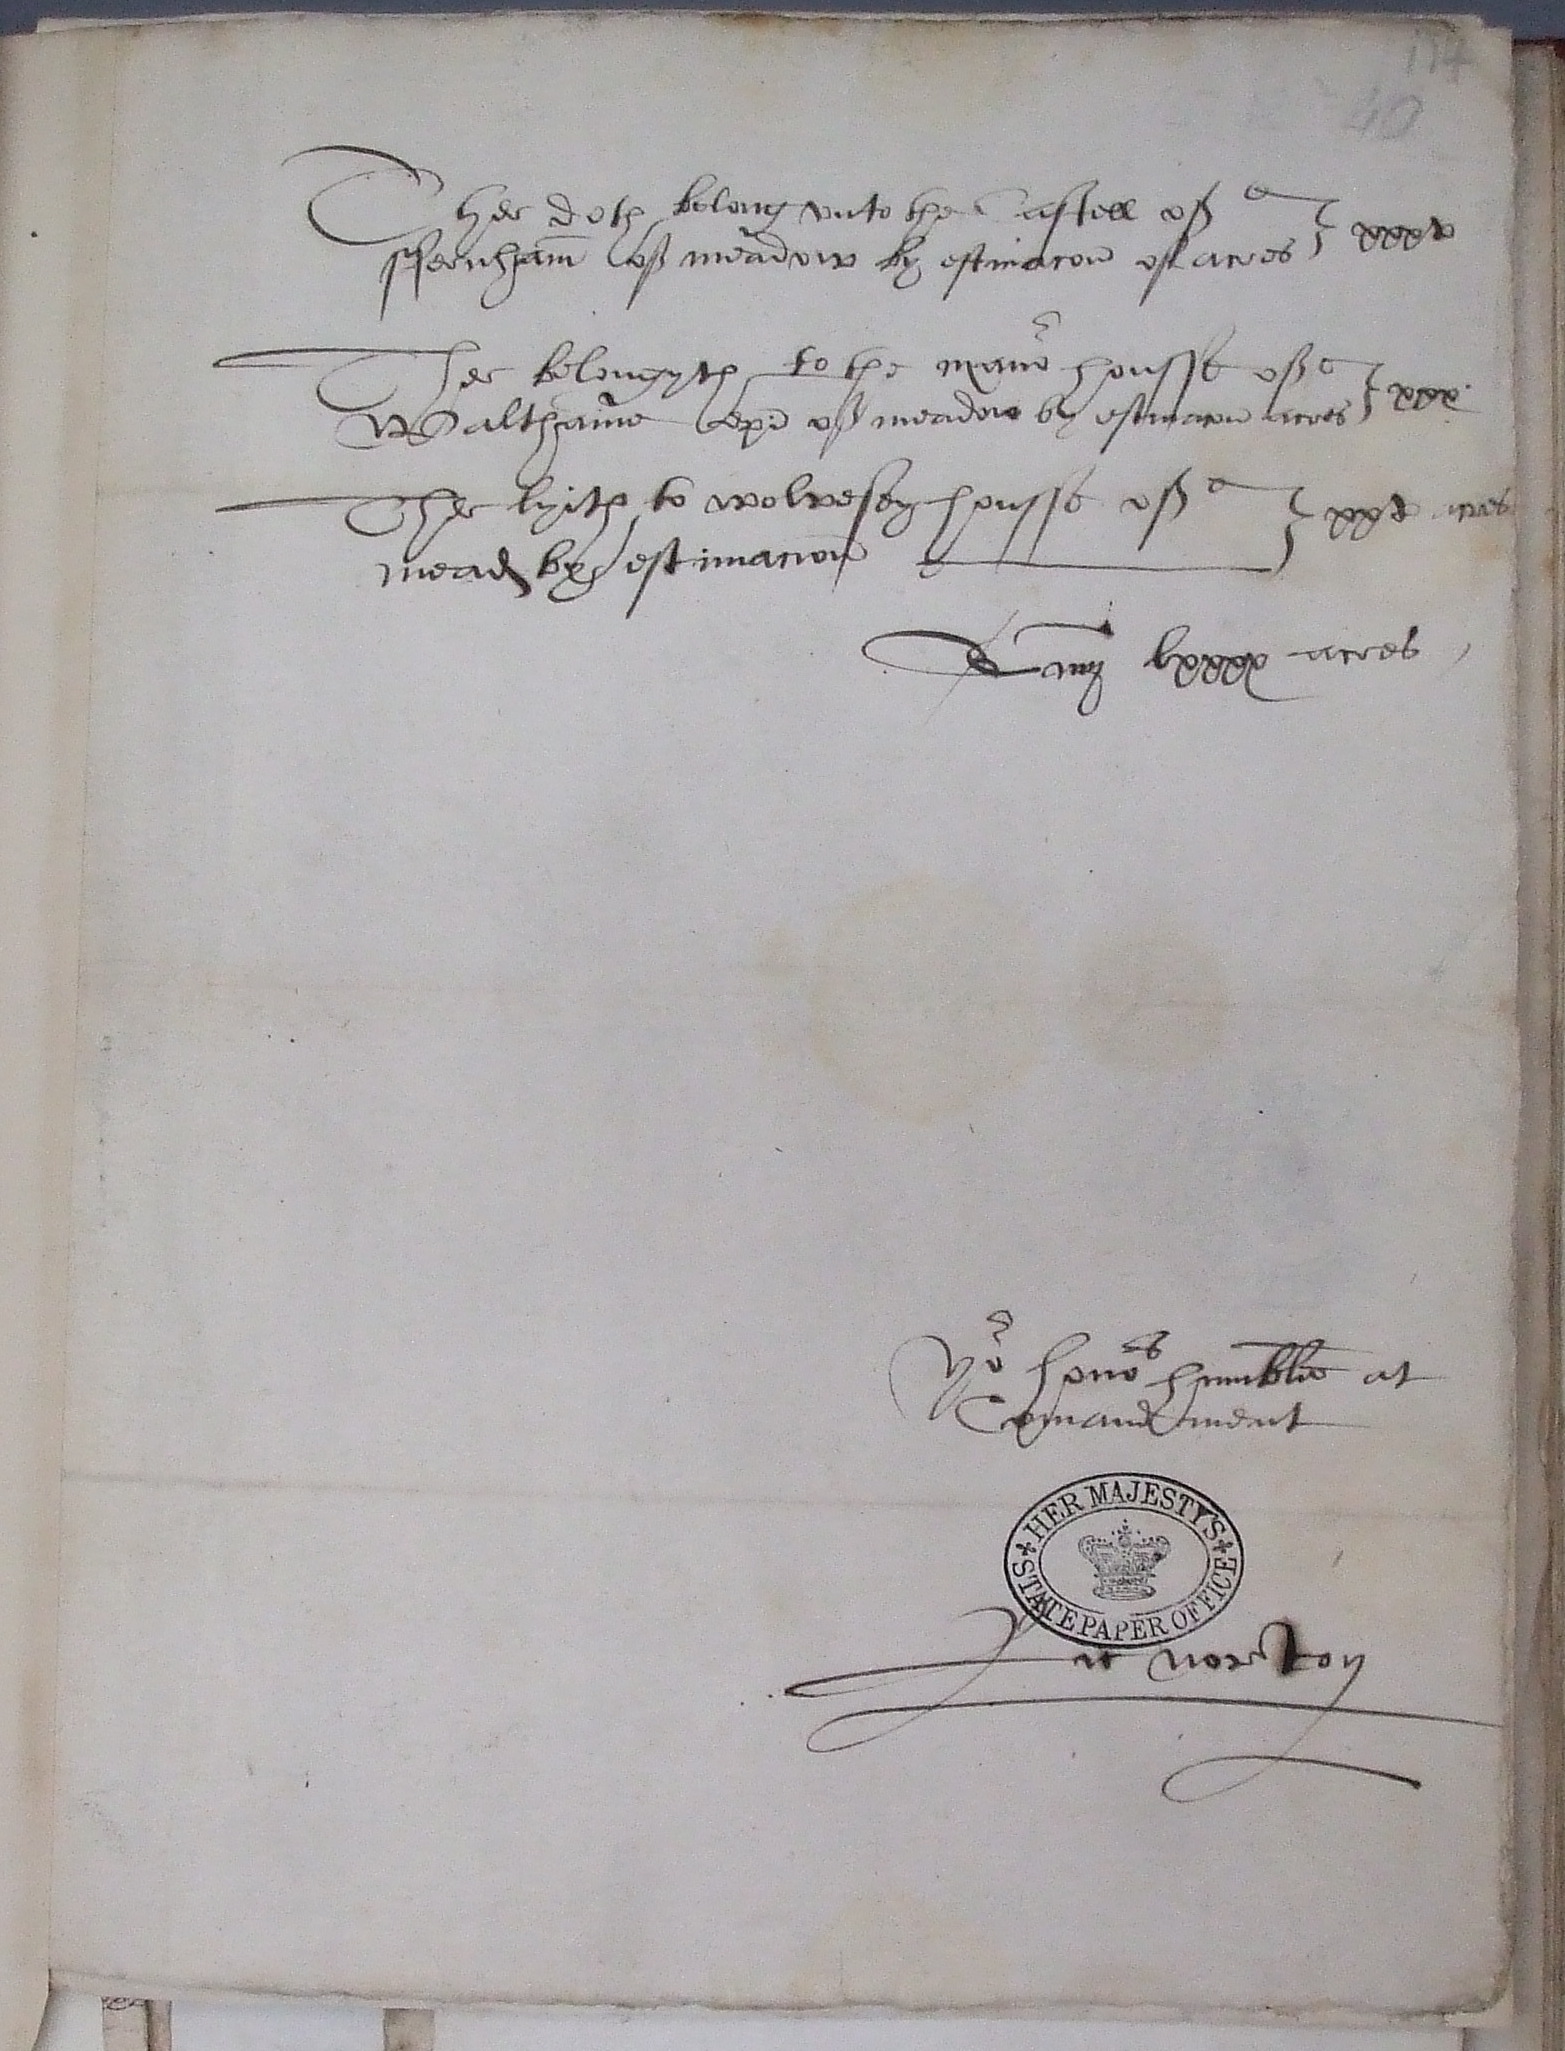 174
40
Ther doth belong unto the Castell off
ffernham off meadow by estimacon off acres } xxxv
Ther belongyth to the mano^r housse off
Walthame epi off meadow by estimacon acres } xxx
Ther lyith to wolvesey housse off
mead by estimacion } xxv acres
Sum lxxxx acres
Yo^r hono^rs humblie at
Comandment
HER MAJESTYS
STATE PAPER OFFICE
norton